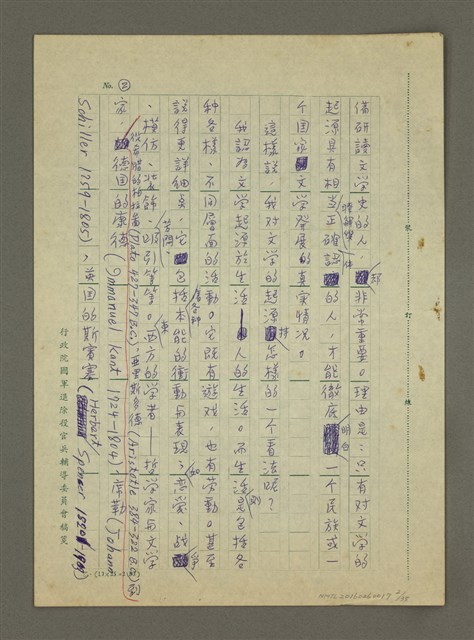 No. ②
備研讀文学史的人,却非常重要。理由是:只有对文学的
起源具有相当正確認的人,才能徹底明白一个民族或一
个国家文学發展的真实情况。
這樣說,我对文学的起源持怎樣的一个看法呢?
我認为文学起源於生活—人的生活。而生活是包括各
种各樣、不同層面的活動。它既有遊戏,也有劳動。甚至
說得更詳細点,它包括本能的衝動与表現;如恋爱、战争
、模仿、裝飾、吸引等等。西方的学者—哲学家与文学
從希腊的柏拉圖(Plato 427-347 B.C.)、亞里斯多德(Aristotle 384-322 B.C.)到
家,德国的康德(Immanuel Kant 1924-1804)、席勒(Johann
Schiller 1759-1805),英国的斯賓塞(Herbert Spencer 1820-1903)
行政院國軍退除役官兵輔導委員會稿箋
裝 訂 線